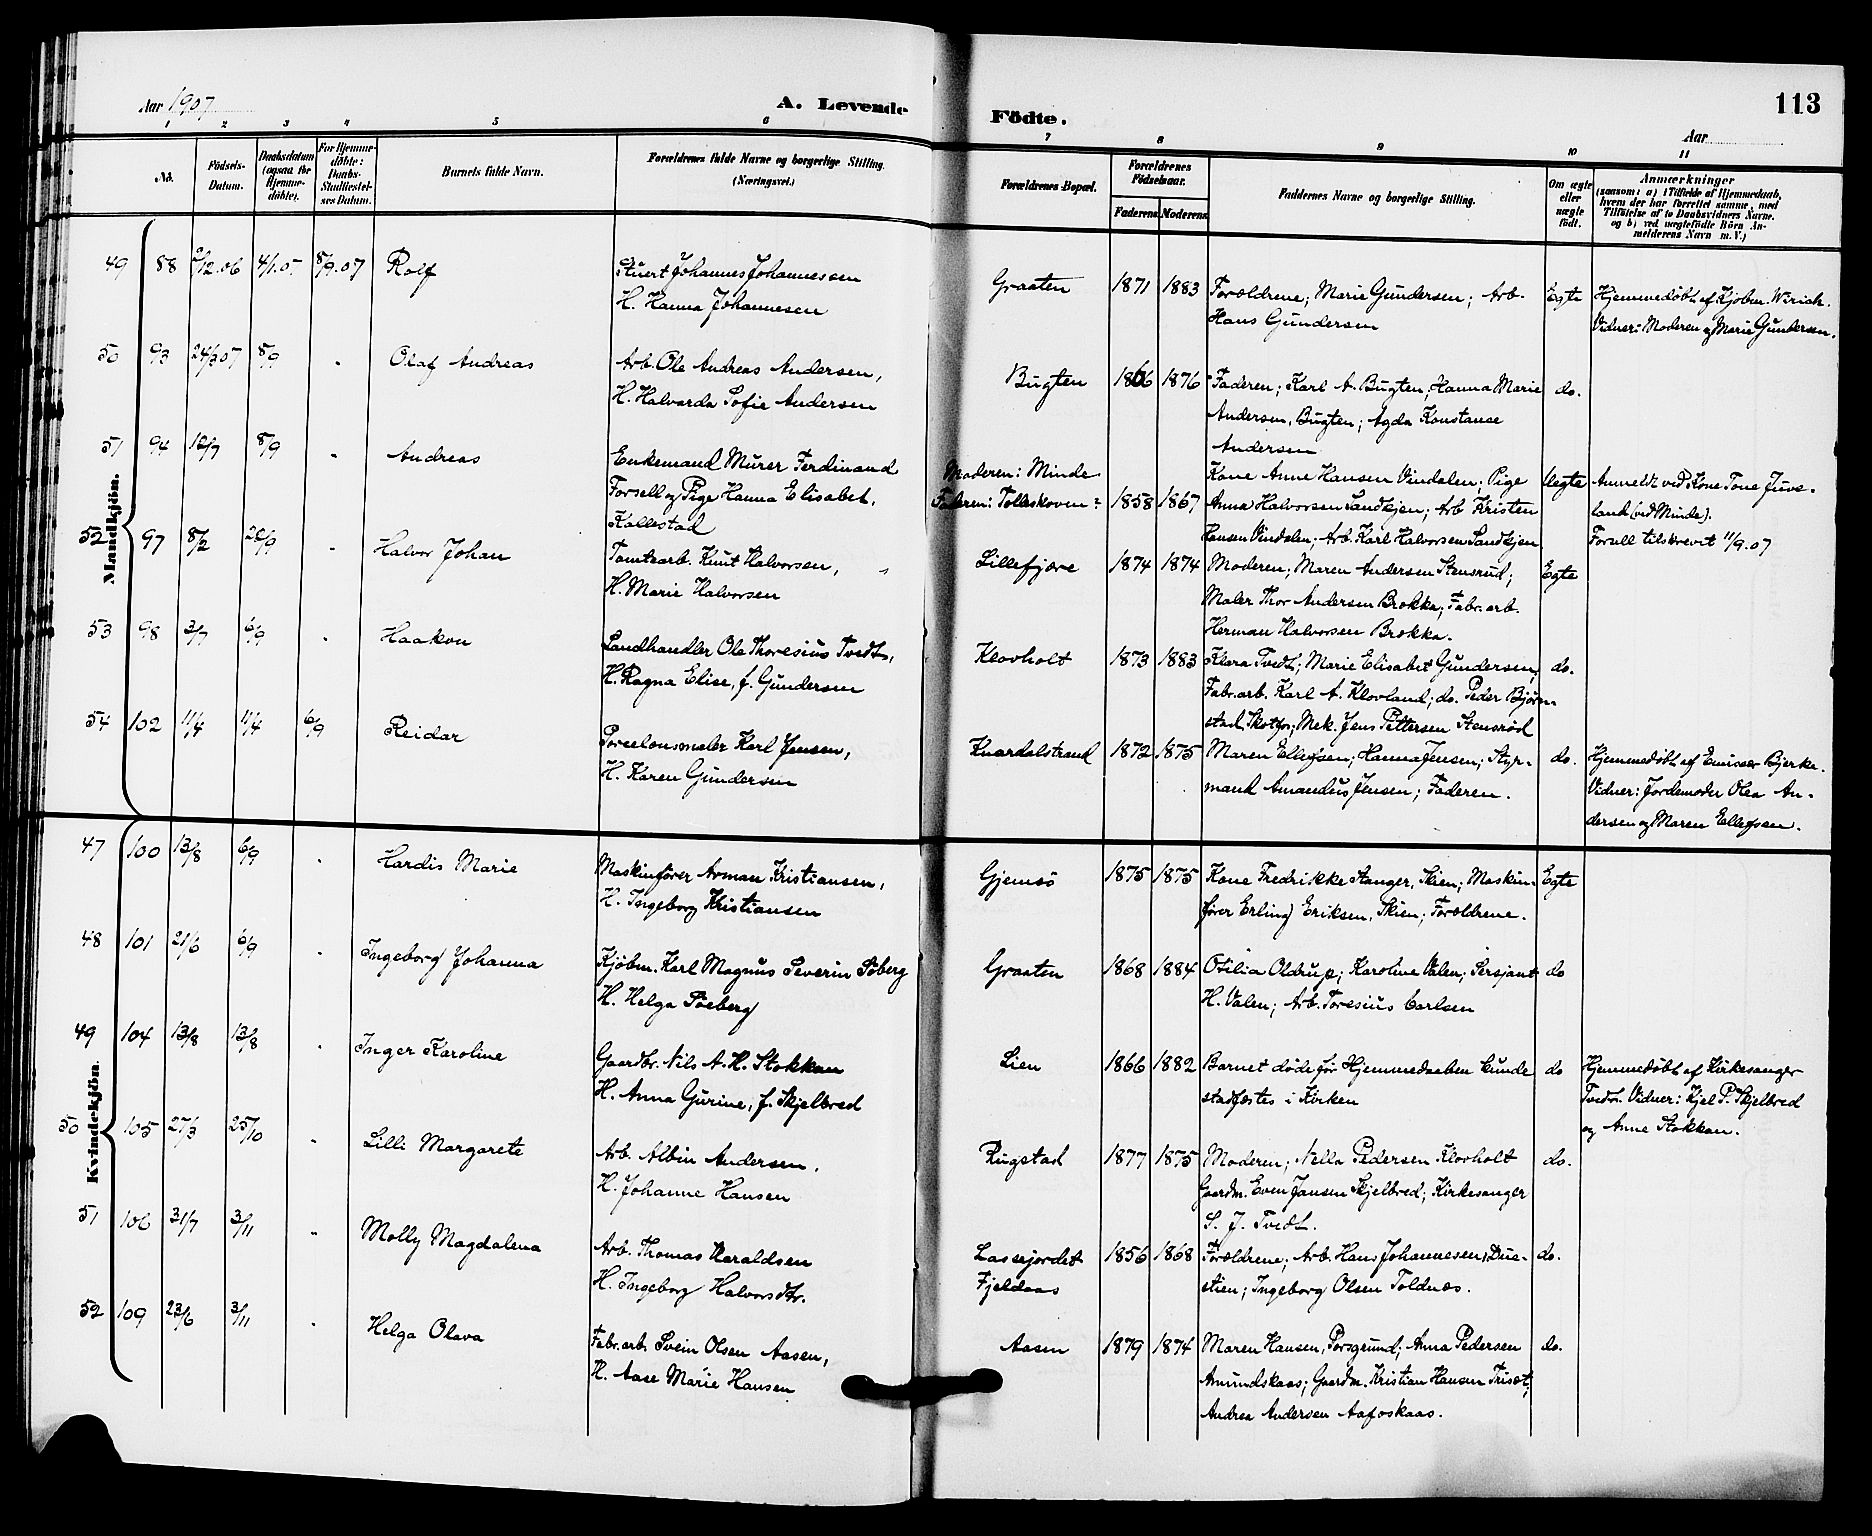 Aar 1907
A. Levende
Födte.
113
Aar
1 2 3 4 5 6 7 8 9 10 11
No.
Födsels-
Datum.
Daabsdatum
(ogsaa for
Hjemme-
döbte).
For Hjemme-
döbte:
Daabs-
Stadfæstel-
ses Datum.
Barnets fulde Navn.
Forældrenes fulde Navne og borgerlige Stilling.
(Næringsvei.)
Forældrenes Bopæl.
Forældrenes
Födselsaar.
Faderens Moderens
Faddernes Navne og borgerlige Stilling.
Om ægte
eller
uægte
födt.
Anmærkninger
(saasom: a) i Tilfælde af Hjemmedaab,
hvem der har forrettet samme, med
Tilföielse af to Daabsvidners Navne.
og b) ved uægtefödte Börn An-
melderens Navn m. V.)
Mandkjön.
49 88 2/12.06 4/1.07 8/9.07 Rolf
Stuert Johannes Johannessen
H. Hanna Johannesen
Graaten 1871 1883
Forældrene; Marie Gundersen; Arb.
Hans Gundersen
Egte
Hjemmedøbt af Kjøbm. Wirich.
Vidner: Moderen og Marie Gundersen.
50 93 24/3 07 8/9 " Olaf Andreas
Arb. Ole Andreas Andersen,
H. Halvarda Sofie Andersen
Bugten 1866 1876
Faderen; Karl A. Bugten, Hanna Marie
Andersen, Bugten; Agda Konstanse
Andersen
do.
51 94 12/7 8/9 " Andreas
Enkemand Murer Ferdinand
Forsell og Pige Hanna Elisabet
Kallestad
Moderen: Minde
Faderen: Tolleskoven 1858 1867
Kone Anne Hansen Vindalen; Pige
Anna Halvorsen Sandkjen; Arb. Kristen
Hansen Vindalen; Arb. Karl Halvorsen Sandkjen
Uegte
Anmeldt ved Kone Tone Juve-
land (ved Minde).
Forsell tilskrevet 11/9.07
52 97 8/2 28/9 " Halvor Johan
Tomtearb. Knut Halvorsen,
H. Marie Halvorsen
Lillefjære 1874 1874
Moderen; Maren Andersen Stensrud;
Maler Thor Andersen Brokka; Fabr.arb.
Herman Halvorsen Brokka.
Egte
53 98 3/7 6/9 " Haakon
Landhandler Ole Thoresius Tvedt,
H. Ragna Elise, f. Gundersen
Klovholt 1873 1883
Klara Tvedt; Marie Elisabet Gundersen,
Fabr.arb. Karl A. Klovland; do. Peder Bjørn-
stad, Skotfos; Mek. Jens Pettersen Stensrød
do.
54 102 11/4 11/4 6/9 Reidar
Porcelænsmaler Karl Jensen,
H. Karen Gundersen
Knardalstrand 1872 1875
Maren Ellefsen; Hanna Jensen; Styr-
mand Amandus Jensen; Faderen.
do.
Hjemmedøbt af Emissær Bjerke.
Vidner: Jordemoder Olea An-
dersen og Maren Ellefsen.
Kvindekjön.
47 100 13/8 6/9 " Hardis Marie
Maskinfører Arman Kristiansen,
H. Ingeborg Kristiansen
Gjemsö 1875 1875
Kone Fredrikke Stanger, Skien; Maskin-
fører Erling Eriksen, Skien; Forældrene.
Egte
48 101 21/6 6/9 " Ingeborg Johanna
Kjøbm. Karl Magnus Severin Søberg
H. Helga Søeberg
Graaten 1868 1884
Otilia Oldrup; Karoline Valen; Sersjant
H. Valen; Arb. Toresius Carlsen
do
49 104 13/8 13/8 " Inger Karoline
Gaardbr. Nils A. H. Stokkan
H. Anna Gurine, f. Skjelbred
Lien 1866 1882
Barnet døde før Hjemmedaaben kunde
stadfæstes i Kirken
do
Hjemmedøbt af Kirkesanger
Tvedt. Vidner: Kjel P. Skjelbred
og Anne Stokkan.
50 105 27/3 25/10 " Lilli Margarete
Arb. Albin Andersen,
H. Johanne Hansen
Rugstad 1877 1875
Moderen; Nella Pedersen Klovholt
Gaardm. Even Jansen Skjelbred; Kirkesanger
S. J. Tvedt.
do.
51 106 31/7 3/11 " Molly Magdalena
Arb. Thomas Haraldsen
H. Ingeborg Halvorsdtr.
Lassejordet
Fjeldaas
1856 1868
Forældrene; Arb. Hans Johannesen, Due-
stien; Ingeborg Olsen Toldnæs.
do.
52 109 23/6 3/11 " Helga Olava
Fabr.arb. Svein Olsen Aasen,
H. Aase Marie Hansen
Aasen 1879 1874
Maren Hansen, Porsgrund; Anna Pedersen
Amundskaas; Gaardm. Kristian Hansen Triset;
Andrea Andersen Aafoskaas.
do.